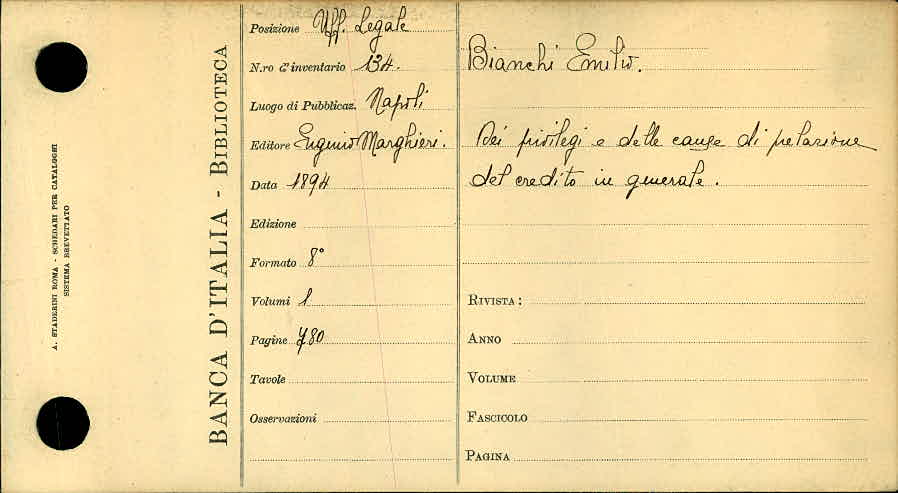 A. STADERINI ROMA - SCHEDARI PER CATALOGHI
SISTEMA BREVETTATO
BANCA D'ITALIA - BIBLIOTECA
Posizione Uff. Legale
N.ro d'inventario 134.
Luogo di Pubblicaz. Napoli
Editore Eugenio Marghieri.
Data 1894
Edizione
Formato 8°
Volumi 1
Pagine 780
Tavole
Osservazioni
Bianchi Emilio.
Dei privilegi e delle cause di prelazione
del credito in generale.
RIVISTA:
ANNO
VOLUME
FASCICOLO
PAGINA